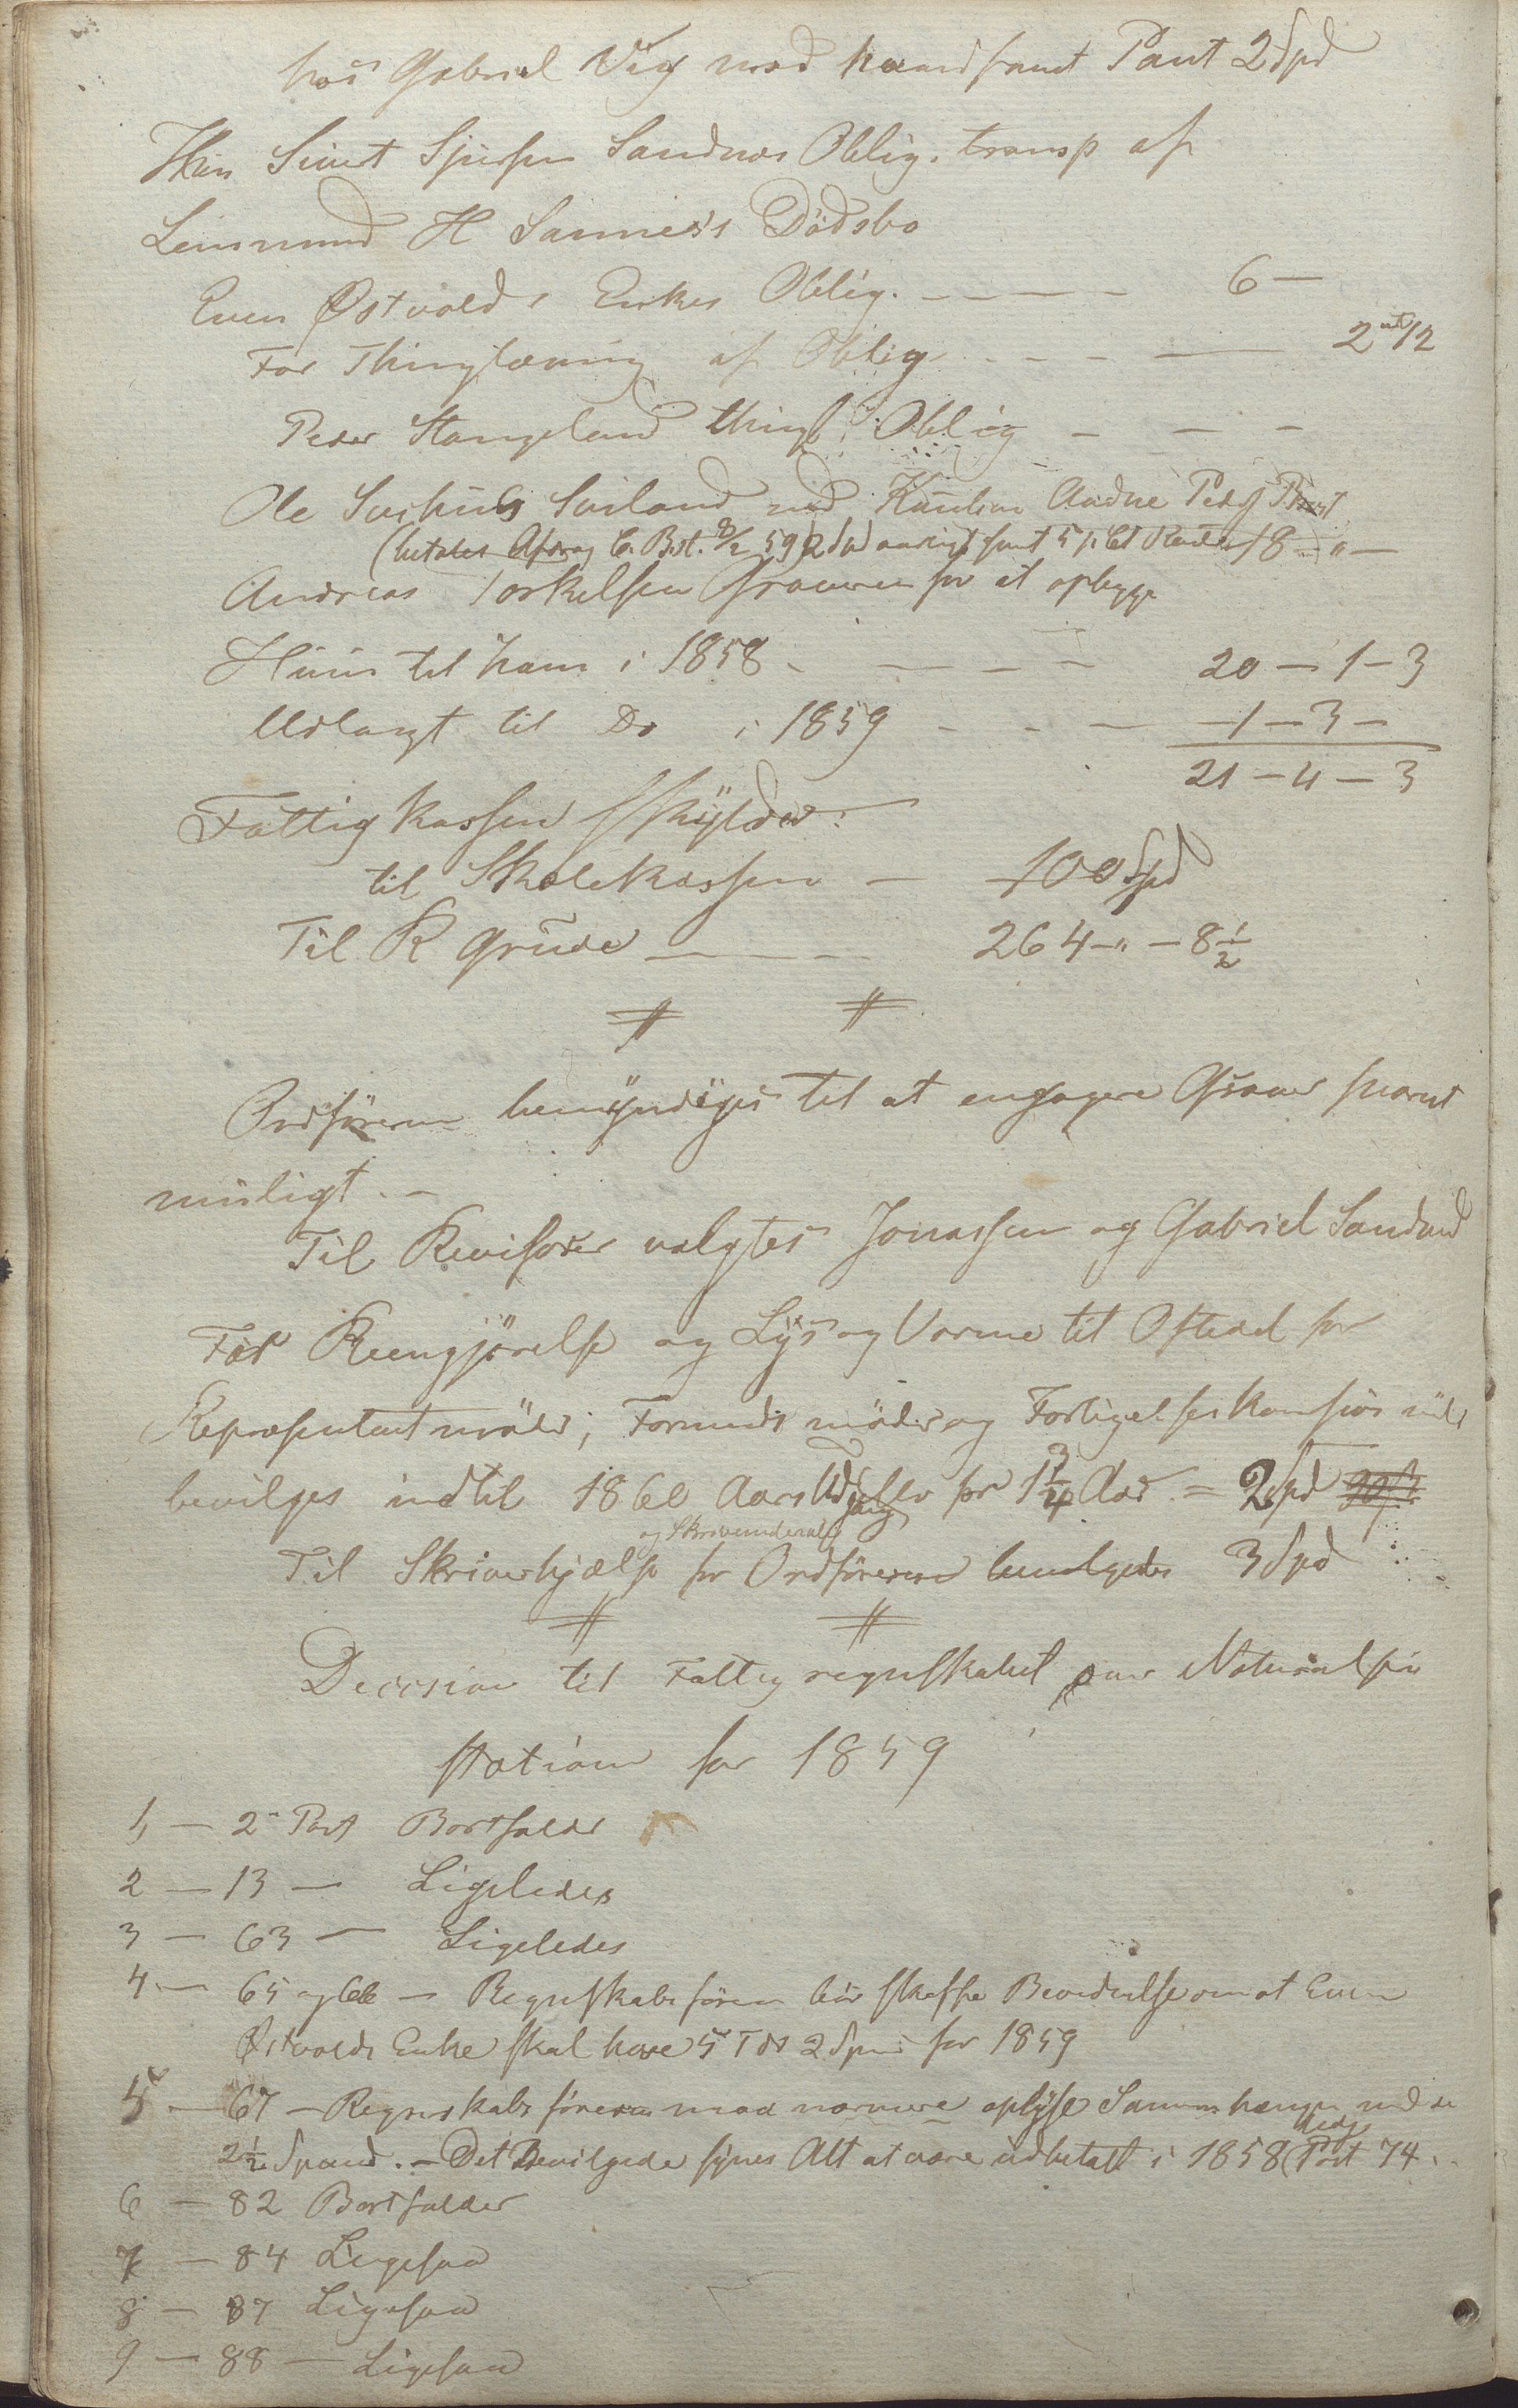 hos Gabriel Vig mod haandfaaet Pant 2 Spd
Sivert Sjursen Sandnes Oblig. transp af
Lensmand H Sannes's Dödsbo
Even Østvolds Enkes Oblig. - - - - 6 -
For Thinglæsning af Oblig - - - — 2 12
Peder Stangeland thingl. Oblig - - -
Ole Surland med Kaution Andre Peders
(betales Afdrag 8/2 59) 2 Spd aarligt samt 5 p Ct Renter 18 - " -
Andreas Torkelsen Graveren for at opbygge
Huus til ham i 1858 - - - - 20 - 1 - 3
Udlagt til Do i 1859 - - - - 1 - 3 -
21 - 4 - 3
Fattigkassen skylder:
til Skolekassen - 100 Spd
Til K Grude - - - 264 - " - 8 1/2
Ordföreren bemyndiges til at engagere Graver snarest
muligt. -
Til Revisorer valgtes Jonassen og Gabriel Sandved
For Reengjörelse og Lys og Varme til Oftedal for
Repræsentantmöder, Formands möder og Forligelseskomsions möder
bevilges indtil 1860 Aars Udgang for 1 3/4 Aar = 2 Spd
og Skrivematerialier
Til Skriverhjælp for Ordföreren bevilgedes 3 Spd
Decision til Fattigregnskabet over Naturalpræ
stationer for 1859
1, - 2 Post Bortfalder
2 - 13 - Ligeledes
3 - 63 - Ligeledes
4 - 65 og 66 - Regnskabsföreren bör skaffe Bevidnelse om at Even
Østvolds Enke skal have 5 Tdr 2 Spand for 1859
5 - 67 - Regnskabsföreren maa nærmere oplyse Sammenhængen med de
2 1/2 Spand. - Det Bevilgede synes Alt at være udbetalt i 1858 (Post 74.
6 - 82 Bortfalder
7 - 84 Ligesaa
8 - 87 Ligesaa
9 - 88 - Ligesaa